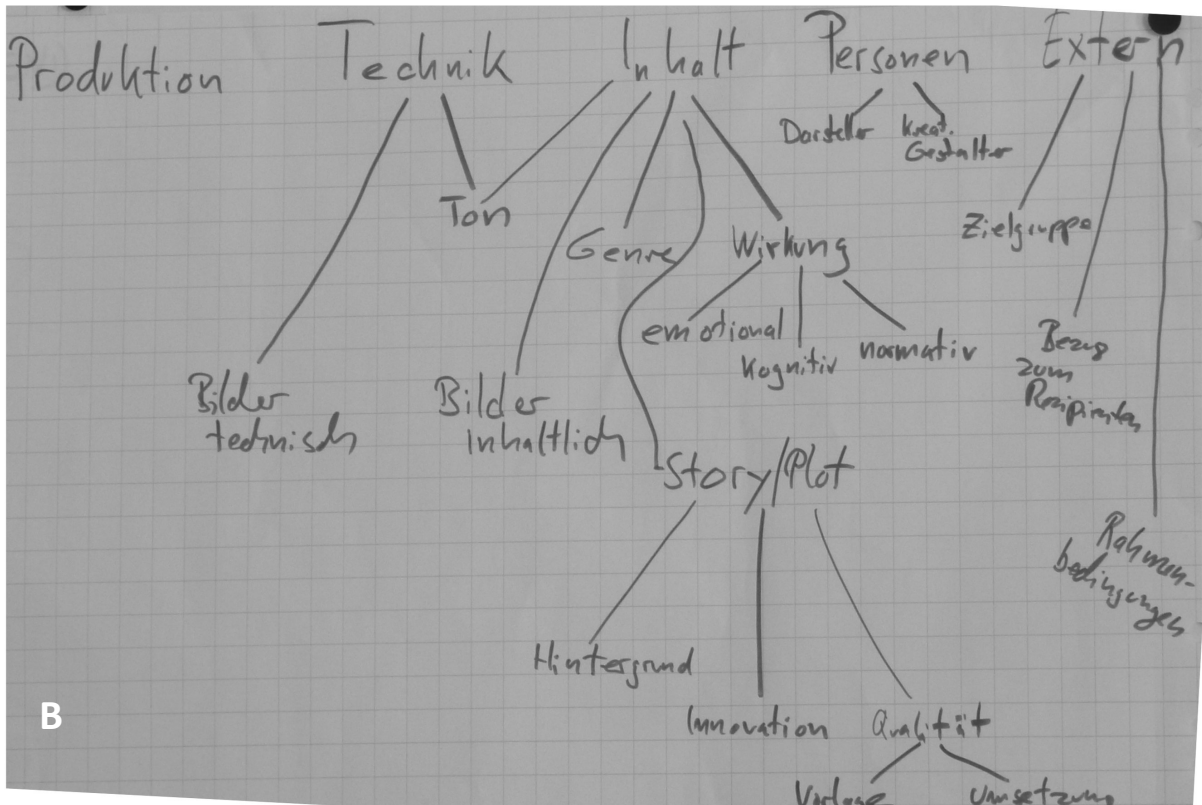 Produktion Technik Inhalt Personen Extern
Darsteller kreat.
Gestalter
Ton
Genre Wirkung Zielgruppe
emotional kognitiv normativ
Bezug
zum
Rezipienten
Bilder
technisch
Bilder
inhaltlich
Story/Plot
Rahmen-
bedingungen
Hintergrund
Innovation Qualität
Vorlage Umsetzung
B